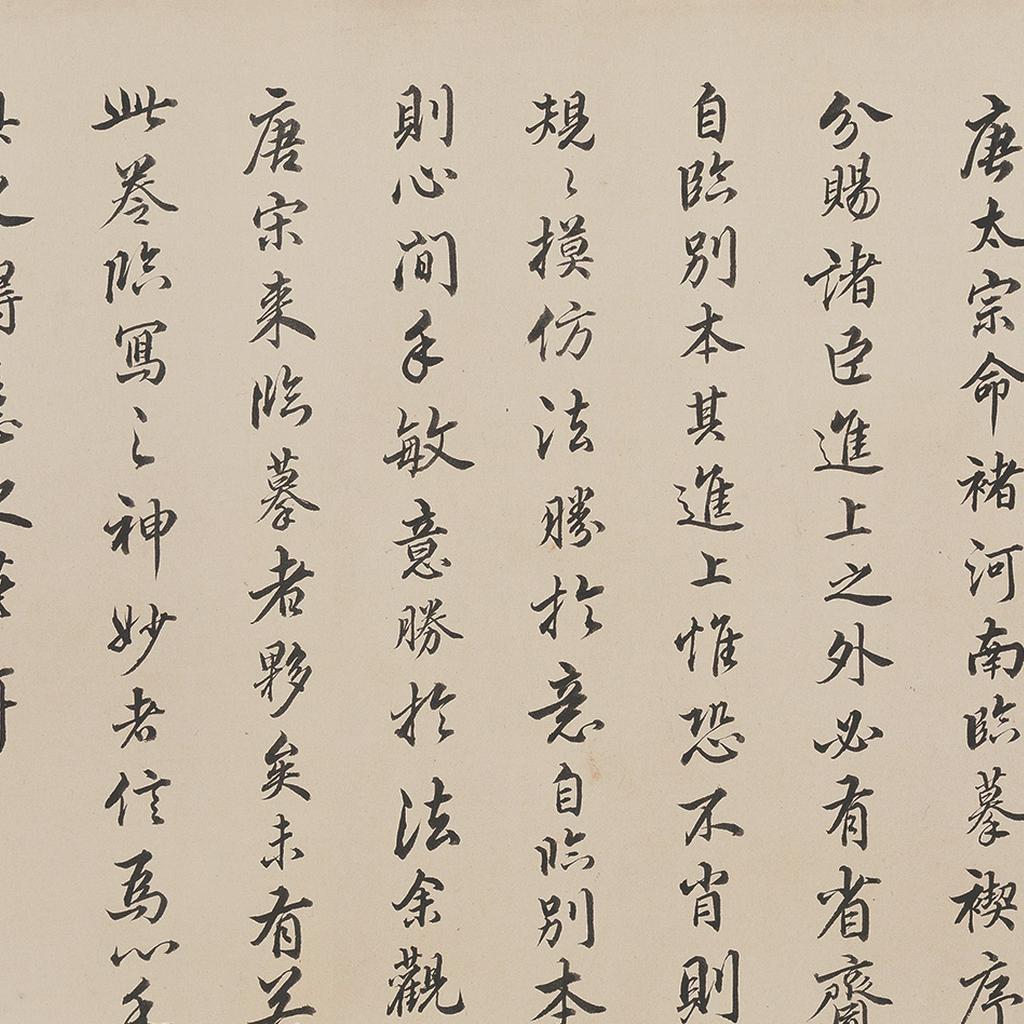 唐太宗命褚河南臨摹禊序
分賜諸臣進上之外必有省齋
自臨別本其進上惟恐不肖則
規〻摸仿法勝於意自臨別本
則心閒手敏意勝於法余觀
唐宋來臨摹者夥矣未有若
此卷臨寫之神妙者信為心手